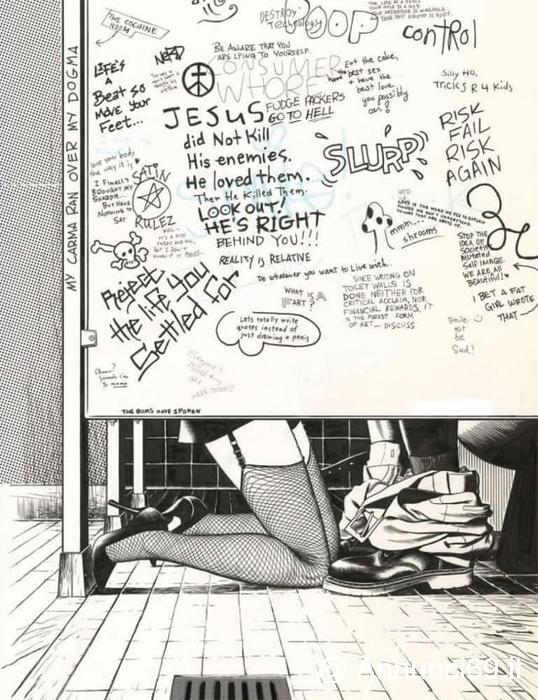 THE COCAINE
ROOM
DESTROY
Technology
POOP
control
LIFE'S
A
Beat so
MOVE Your
Feet...
NEED
BE AWARE THAT YOU
ARE LYING TO YOURSELF.
CONSUMER
WHORE
Eat the cake,
the best sex
+ have the
best love
you possibly
can!
Silly HO,
TRICKS R 4 Kids
JESUS
did Not Kill
His enemies.
He loved them.
Then He Killed Them.
LOOK OUT!
HE'S RIGHT
BEHIND YOU!!!
FUDGE PACKERS
GO TO HELL
SLURP
RISK
FAIL
RISK
AGAIN
love your body,
the way it is
I FINALLY
BROUGHT MY
SHARPIE...
But HAVE
NOTHING TO
SAY
SATIN
RULEZ
UFO
mmm..
shrooms
STOP THE
IDEA OF
SOCIETY
Mutated
Self IMAGE.
WE ARE ALL
BEAUTIFUL!
I BET A FAT
GIRL WROTE
THAT
REALITY is RELATIVE
Do whatever you want to Live with..
Reject
the life you
Settled for
WHAT IS
FART?
SINCE WRITING ON
TOILET WALLS IS
DONE NEITHER FOR
CRITICAL ACCLAIM, NOR
FINANCIAL REWARDS, IT
IS THE PUREST FORM
OF ART — DISCUSS
Lets totally write
quotes instead of
just drawing a penis
Smile
not
be
Sad!
MY CARMA RAN OVER MY DOGMA
THE BUMS HAVE SPOKEN